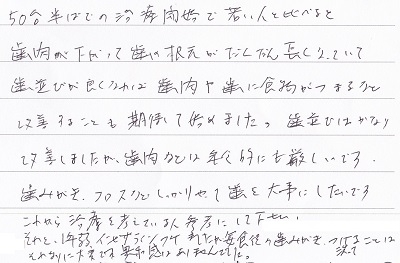 50台半ばでの治療開始で若い人と比べると
歯肉が下がって歯の根元がだんだん長くなっていて
歯並びが良くなれば歯肉や歯に食物がつまるなど
改善することも期待して始めました。歯並びはかなり
改善しましたが、歯肉などは年令的にも厳しいです。
歯みがき、フロスなどしっかりやって歯を大事にしたいです
これから治療を考えている人参考にして下さい。
それと、1年弱、インビザラインつけ 毎食後の歯みがき、つけることは
それなりに大変です 異和感はありませんでした。